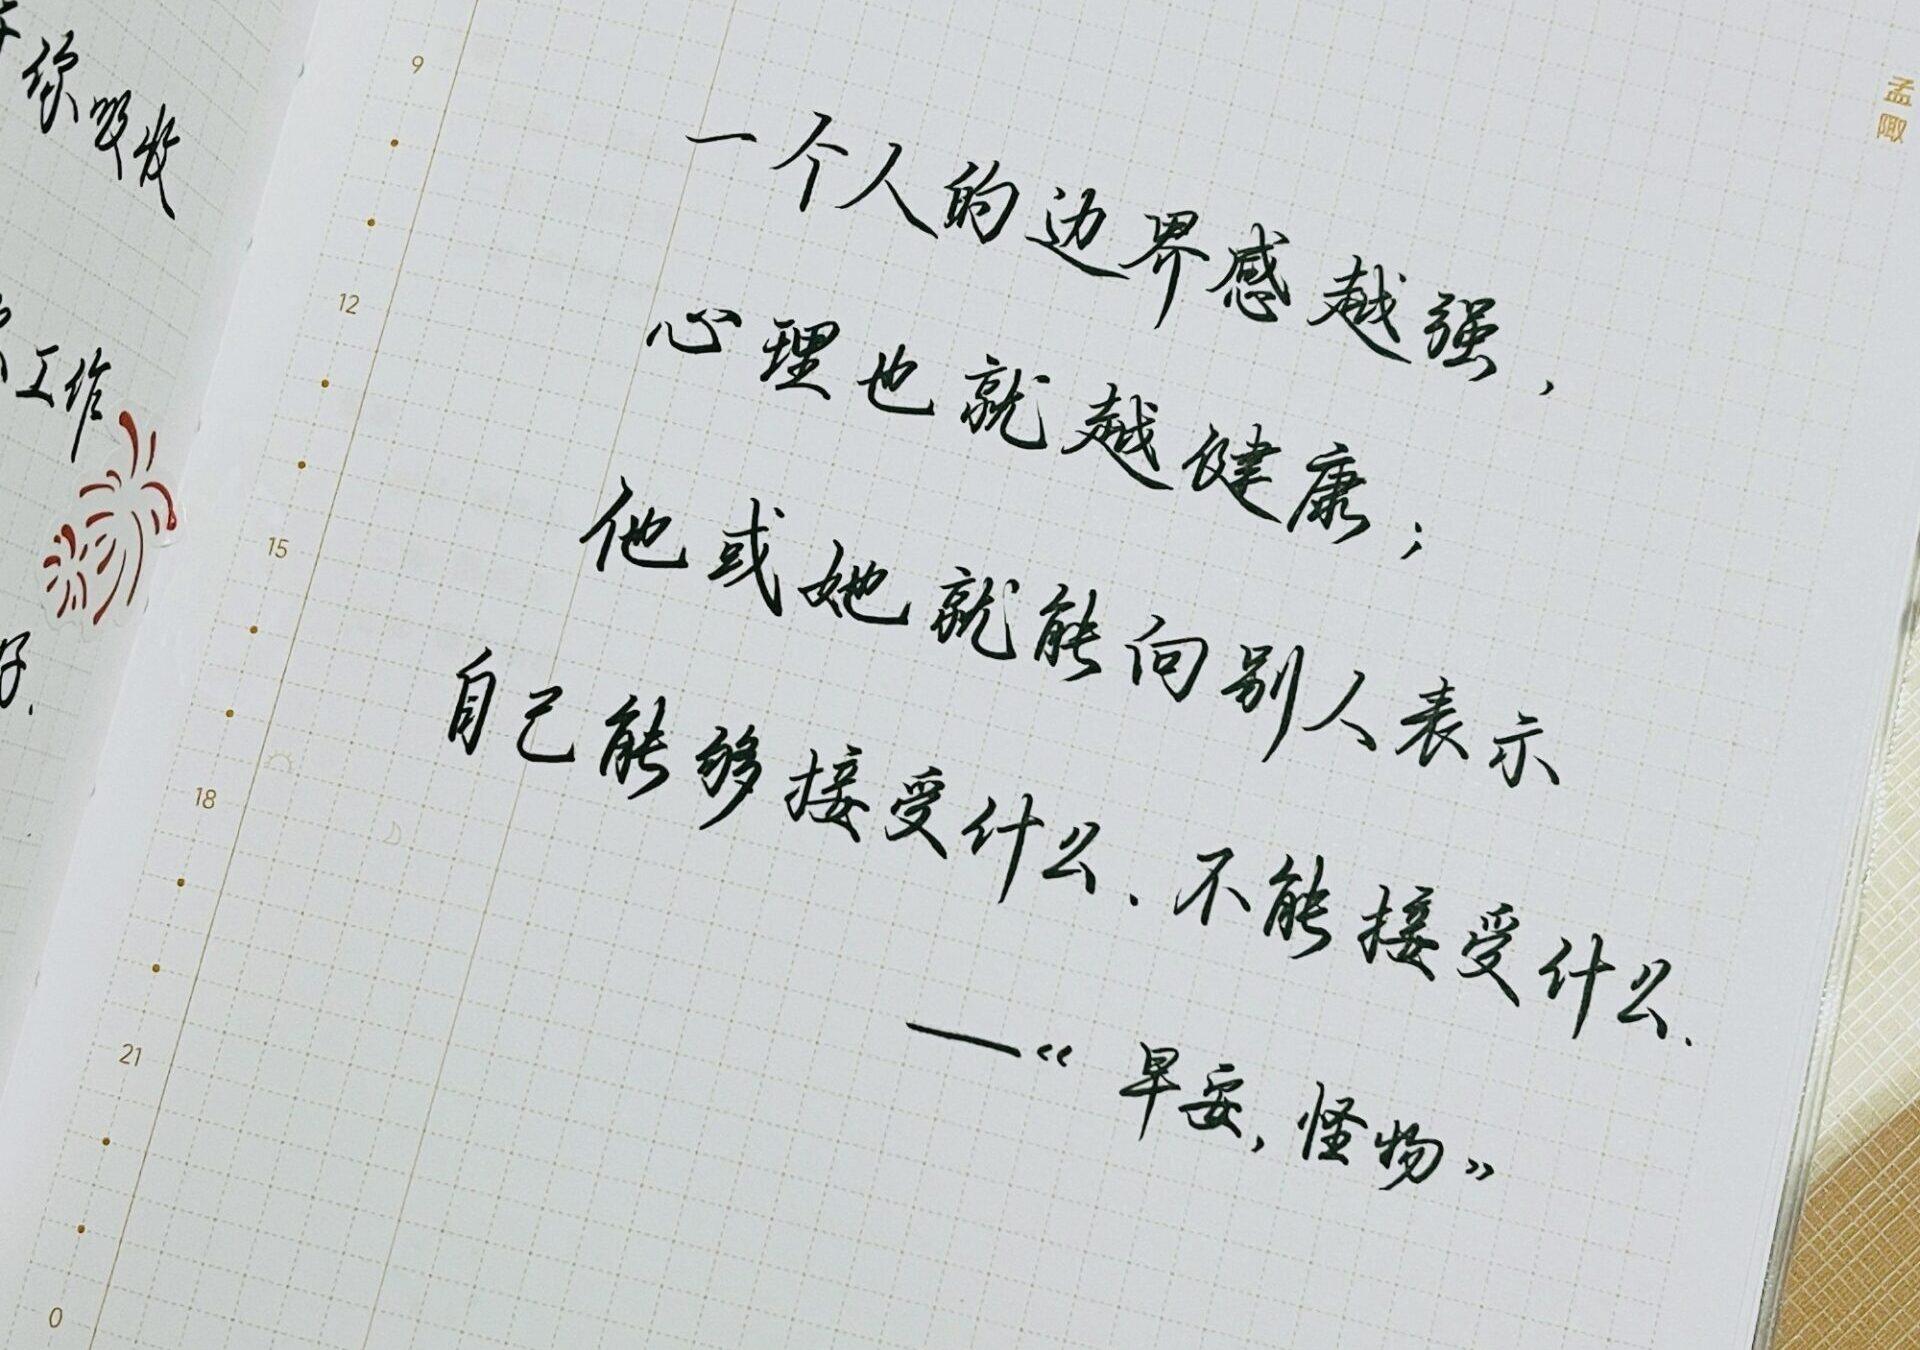 你吸发
工作
好.
9
12
15
18
21
0
孟陬
一个人的边界感越强,
心理也就越健康;
他或她就能向别人表示
自己能够接受什么、不能接受什么.
—《早安,怪物》